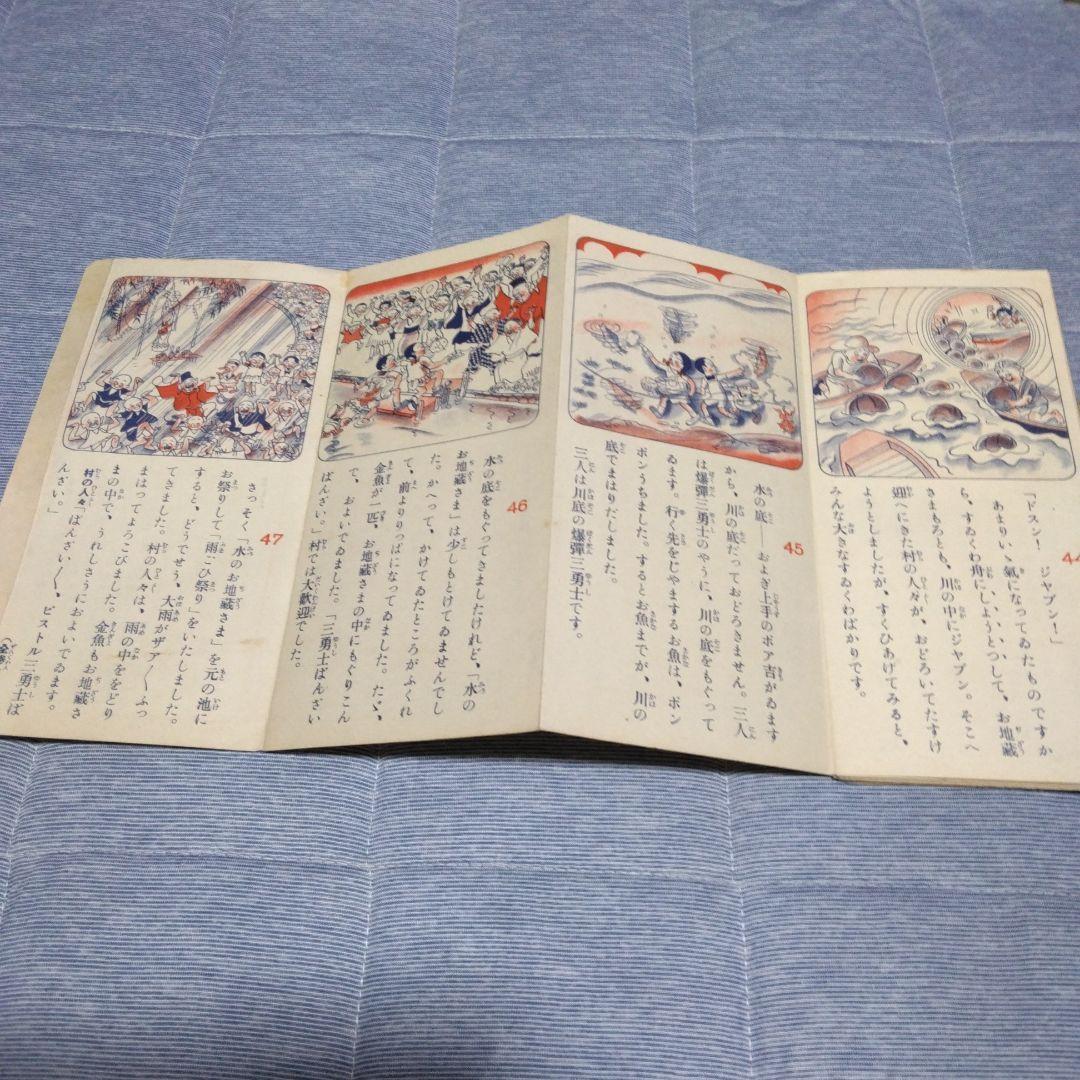 44
「ドスン！　ジャブン！」
あまりいゝ氣になってゐたものですか
ら、すゐくわ舟に「しようとつ」して、お地蔵
さまもろとも、川の中にジャブン。そこへ
迎へにきた村の人々が、おどろいてたすけ
ようとしましたが、すくひあげてみると、
みんな大きなすゐくわばかりです。
45
水の底――およぎ上手のポア吉がゐます
から、川の底だっておどろきません。三人
は爆彈三勇士のやうに、川の底をもぐって
ゐます。行く先をじやまするお魚は、ポン
ポンうちました。するとお魚までが、川の
底でまはりだしました。
三人は川底の爆彈三勇士です。
46
水の底をもぐってきましたけれど、「水の
お地蔵さま」は少しもとけてゐませんでし
た。かへって、かけてゐたところがふくれ
て、前よりりっぱになってゐました。たゞ、
金魚が一匹、お地蔵さまの中にもぐりこん
で、およいでゐました。「三勇士ばんざい
ばんざい。」村では大歡迎でした。
47
さっそく「水のお地蔵さま」を元の池に
お祭りして「雨こひ祭り」をいたしました。
すると、どうでせう、大雨がザア〳〵ふっ
てきました。村の人々は、雨の中ををどり
まはってよろこびました。金魚もお地蔵さ
まの中で、うれしさうにおよいでゐます。
村の人々「ばんざい〳〵、ピストル三勇士ば
んざい。」